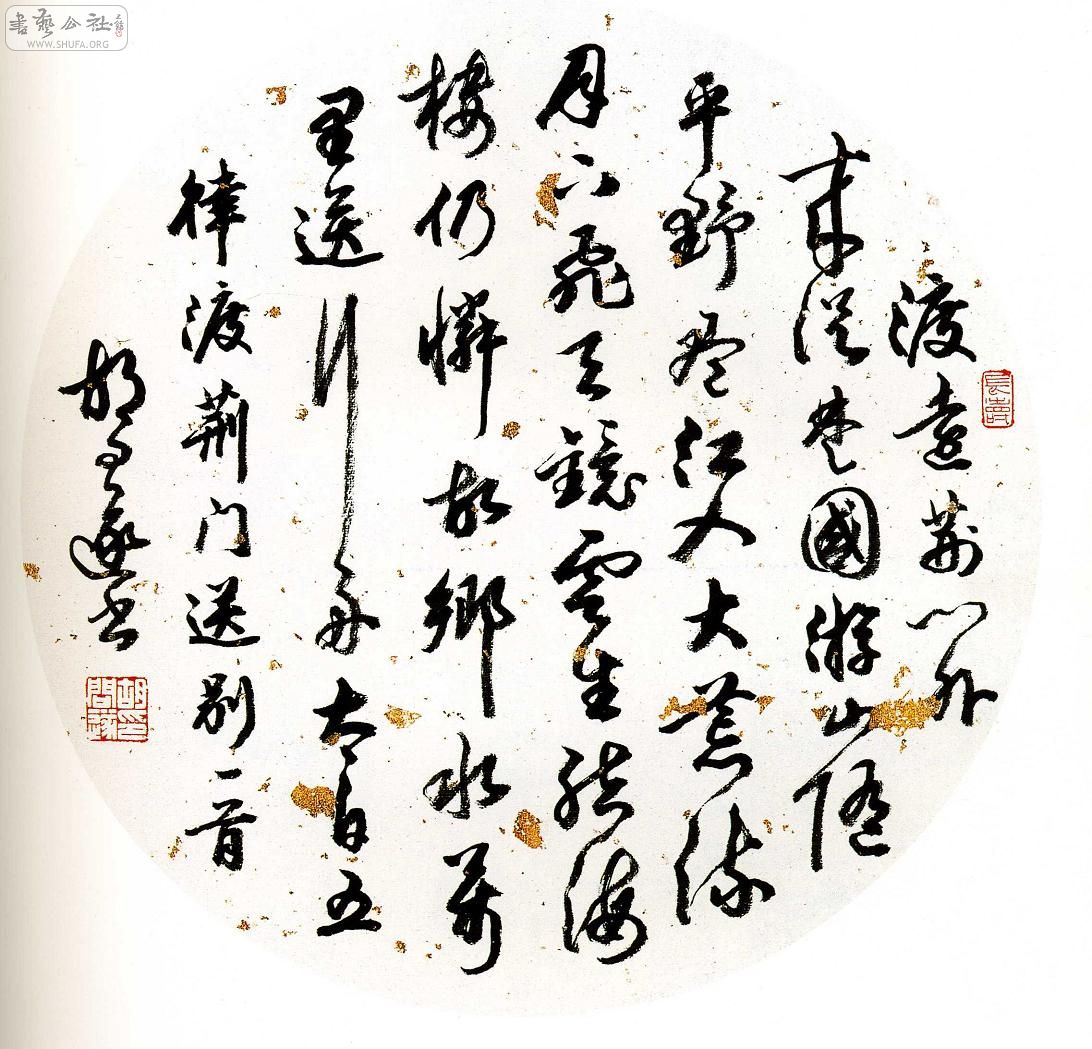 書藝公社
WWW.SHUFA.ORG
渡遠荆门外
來從楚國游山隨
平野盡江入大荒流
月下飛天鏡雲生結海
樓仍憐故鄉水萬
里送行舟太白五
律渡荆门送别一首
胡问遂书
長壽
胡印問遂